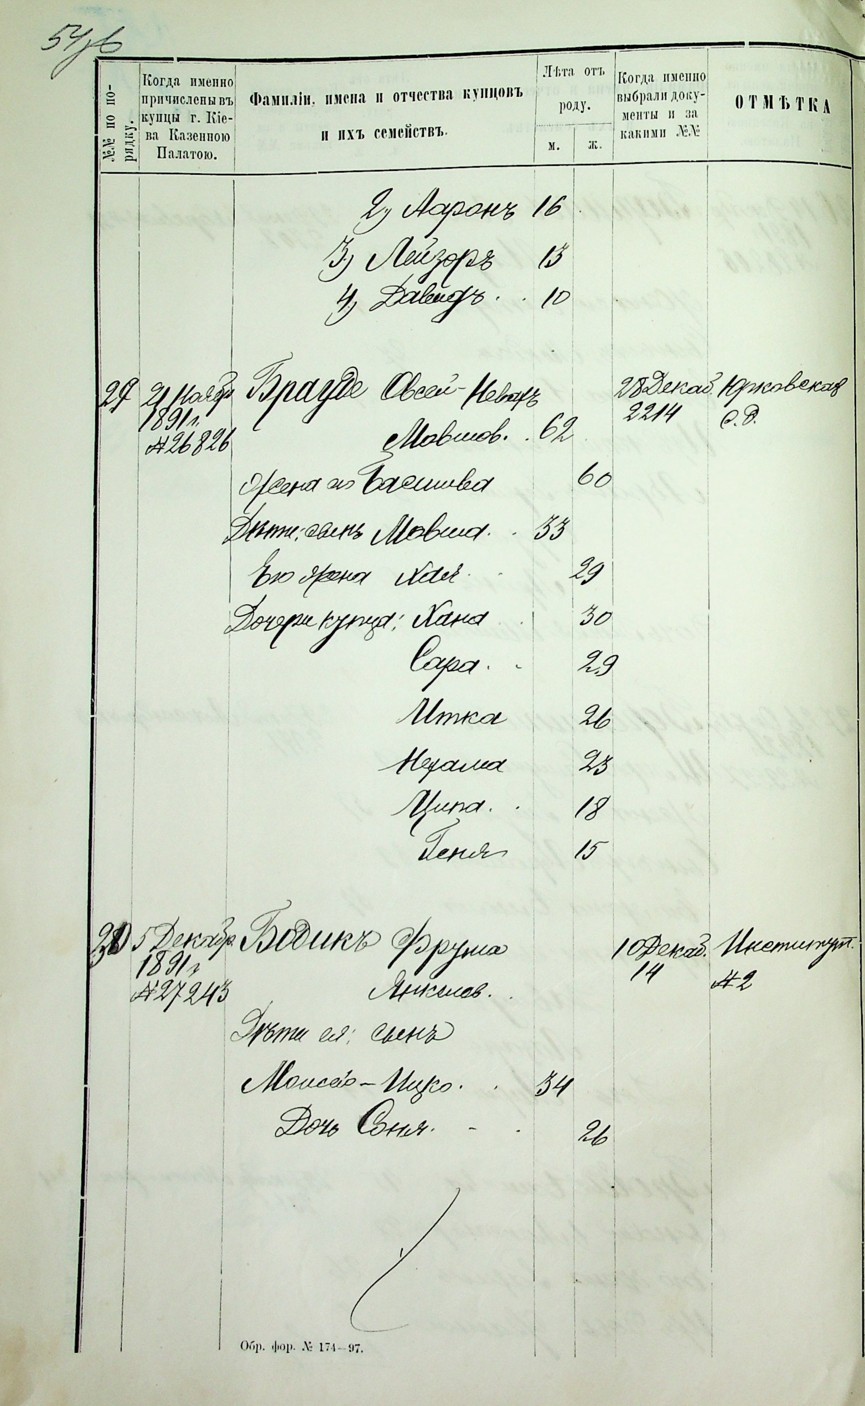 54зв
№№ по по-
рядку.
Когда именно
причислены въ
купцы г. Кіе-
ва Казенною
Палатою.
Фамиліи, имена и отчества купцовъ
и ихъ семействъ.
Лѣта отъ
роду.
м. ж.
Когда именно
выбрали доку-
менты и за
какими №№
ОТМѢТКА
2) Ааронъ 16
3) Лейзоръ 13
4) Давидъ 10
29 21 Ноябр Брауде Овсей- 28 Декаб. Юрковская
1891 г. 2214 с. д.
№ 26826 Мовшов. 62
Жена его Басшева 60
Дѣти: сынъ Мовша 33
Его жена Хая 29
Дочери купца: Хана 30
Сара 29
Итка 26
Нехама 23
Ципа 18
Геня 15
30 5 Декабр Бодикъ Фрума 10 Декаб. Институт.
1891 г. 14 № 2
№ 27243 Янкелев.
Дѣти ея: сынъ
Моисей-Ицко 34
Дочь Соня 26
Обр. фор. № 174—97.